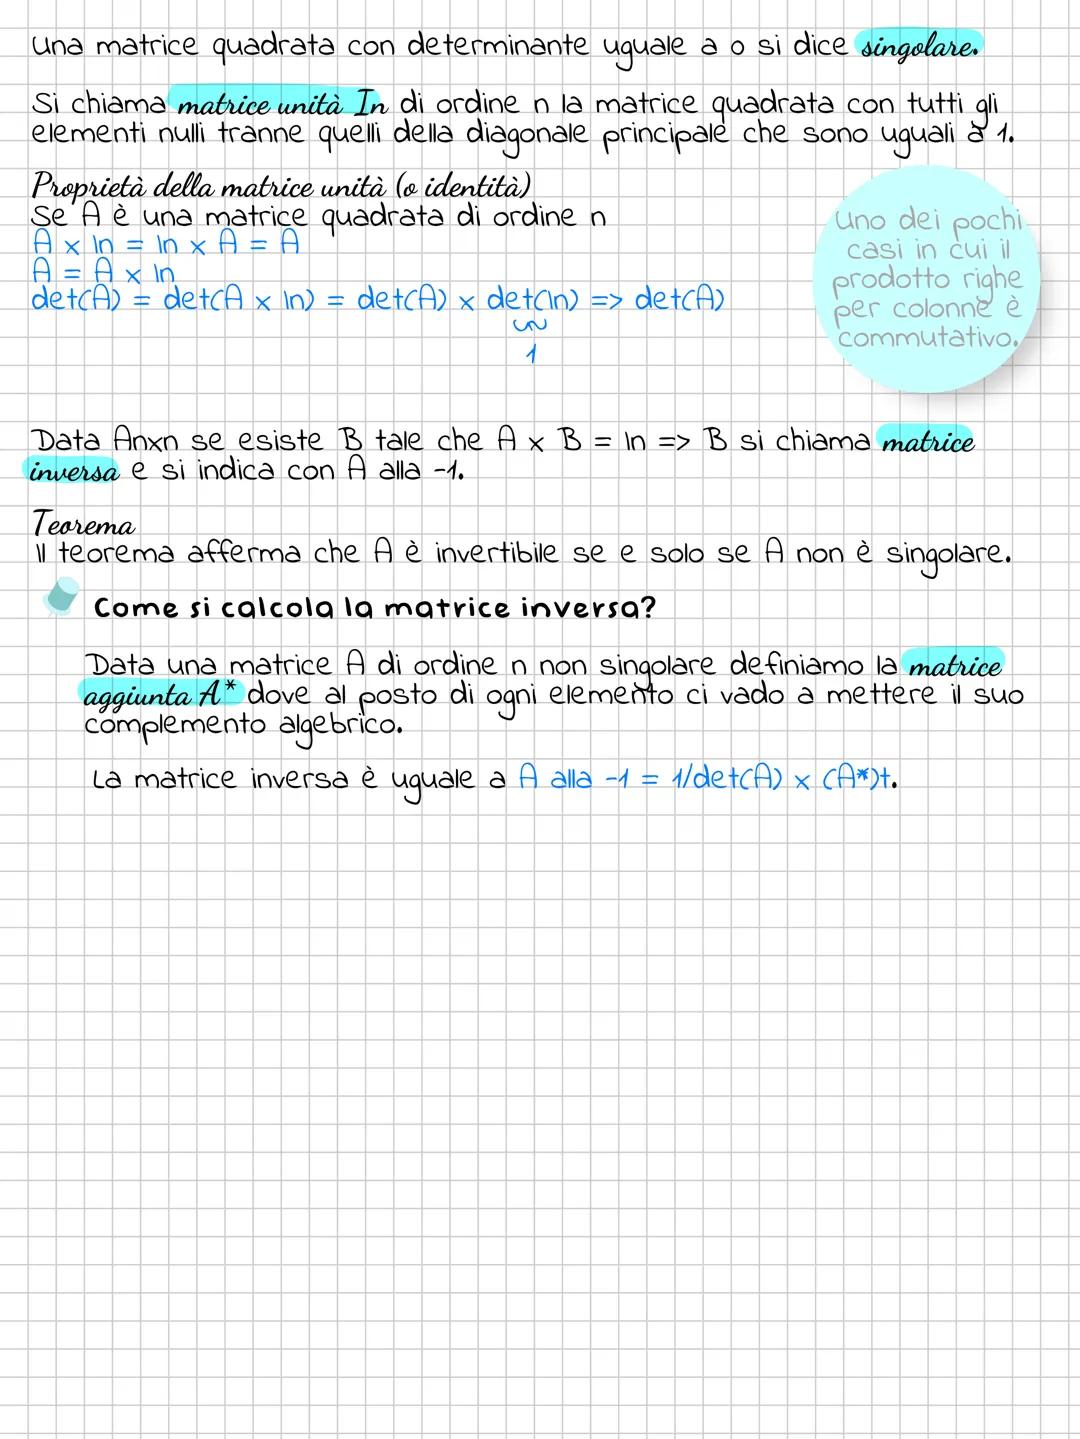 una matrice quadrata con determinante uguale a 0 si dice singolare.
Si chiama matrice unità In di ordine n la matrice quadrata con tutti gli
elementi nulli tranne quelli della diagonale principale che sono uguali a 1.
Proprietà della matrice unità (o identità)
Se A è una matrice quadrata di ordine n
A x In = In x A = A
A = A x In
det(A) = det(A x In) = det(A) x det(In) => det(A)
1
Uno dei pochi
casi in cui il
prodotto righe
per colonne è
commutativo.
Data Anxn se esiste B tale che A x B = In => B si chiama matrice
inversa e si indica con A alla -1.
Teorema
Il teorema afferma che A è invertibile se e solo se A non è singolare.
Come si calcola la matrice inversa?
Data una matrice A di ordine n non singolare definiamo la matrice
aggiunta A* dove al posto di ogni elemento ci vado a mettere il suo
complemento algebrico.
La matrice inversa è uguale a A alla -1 = 1/det(A) x (A*)t.